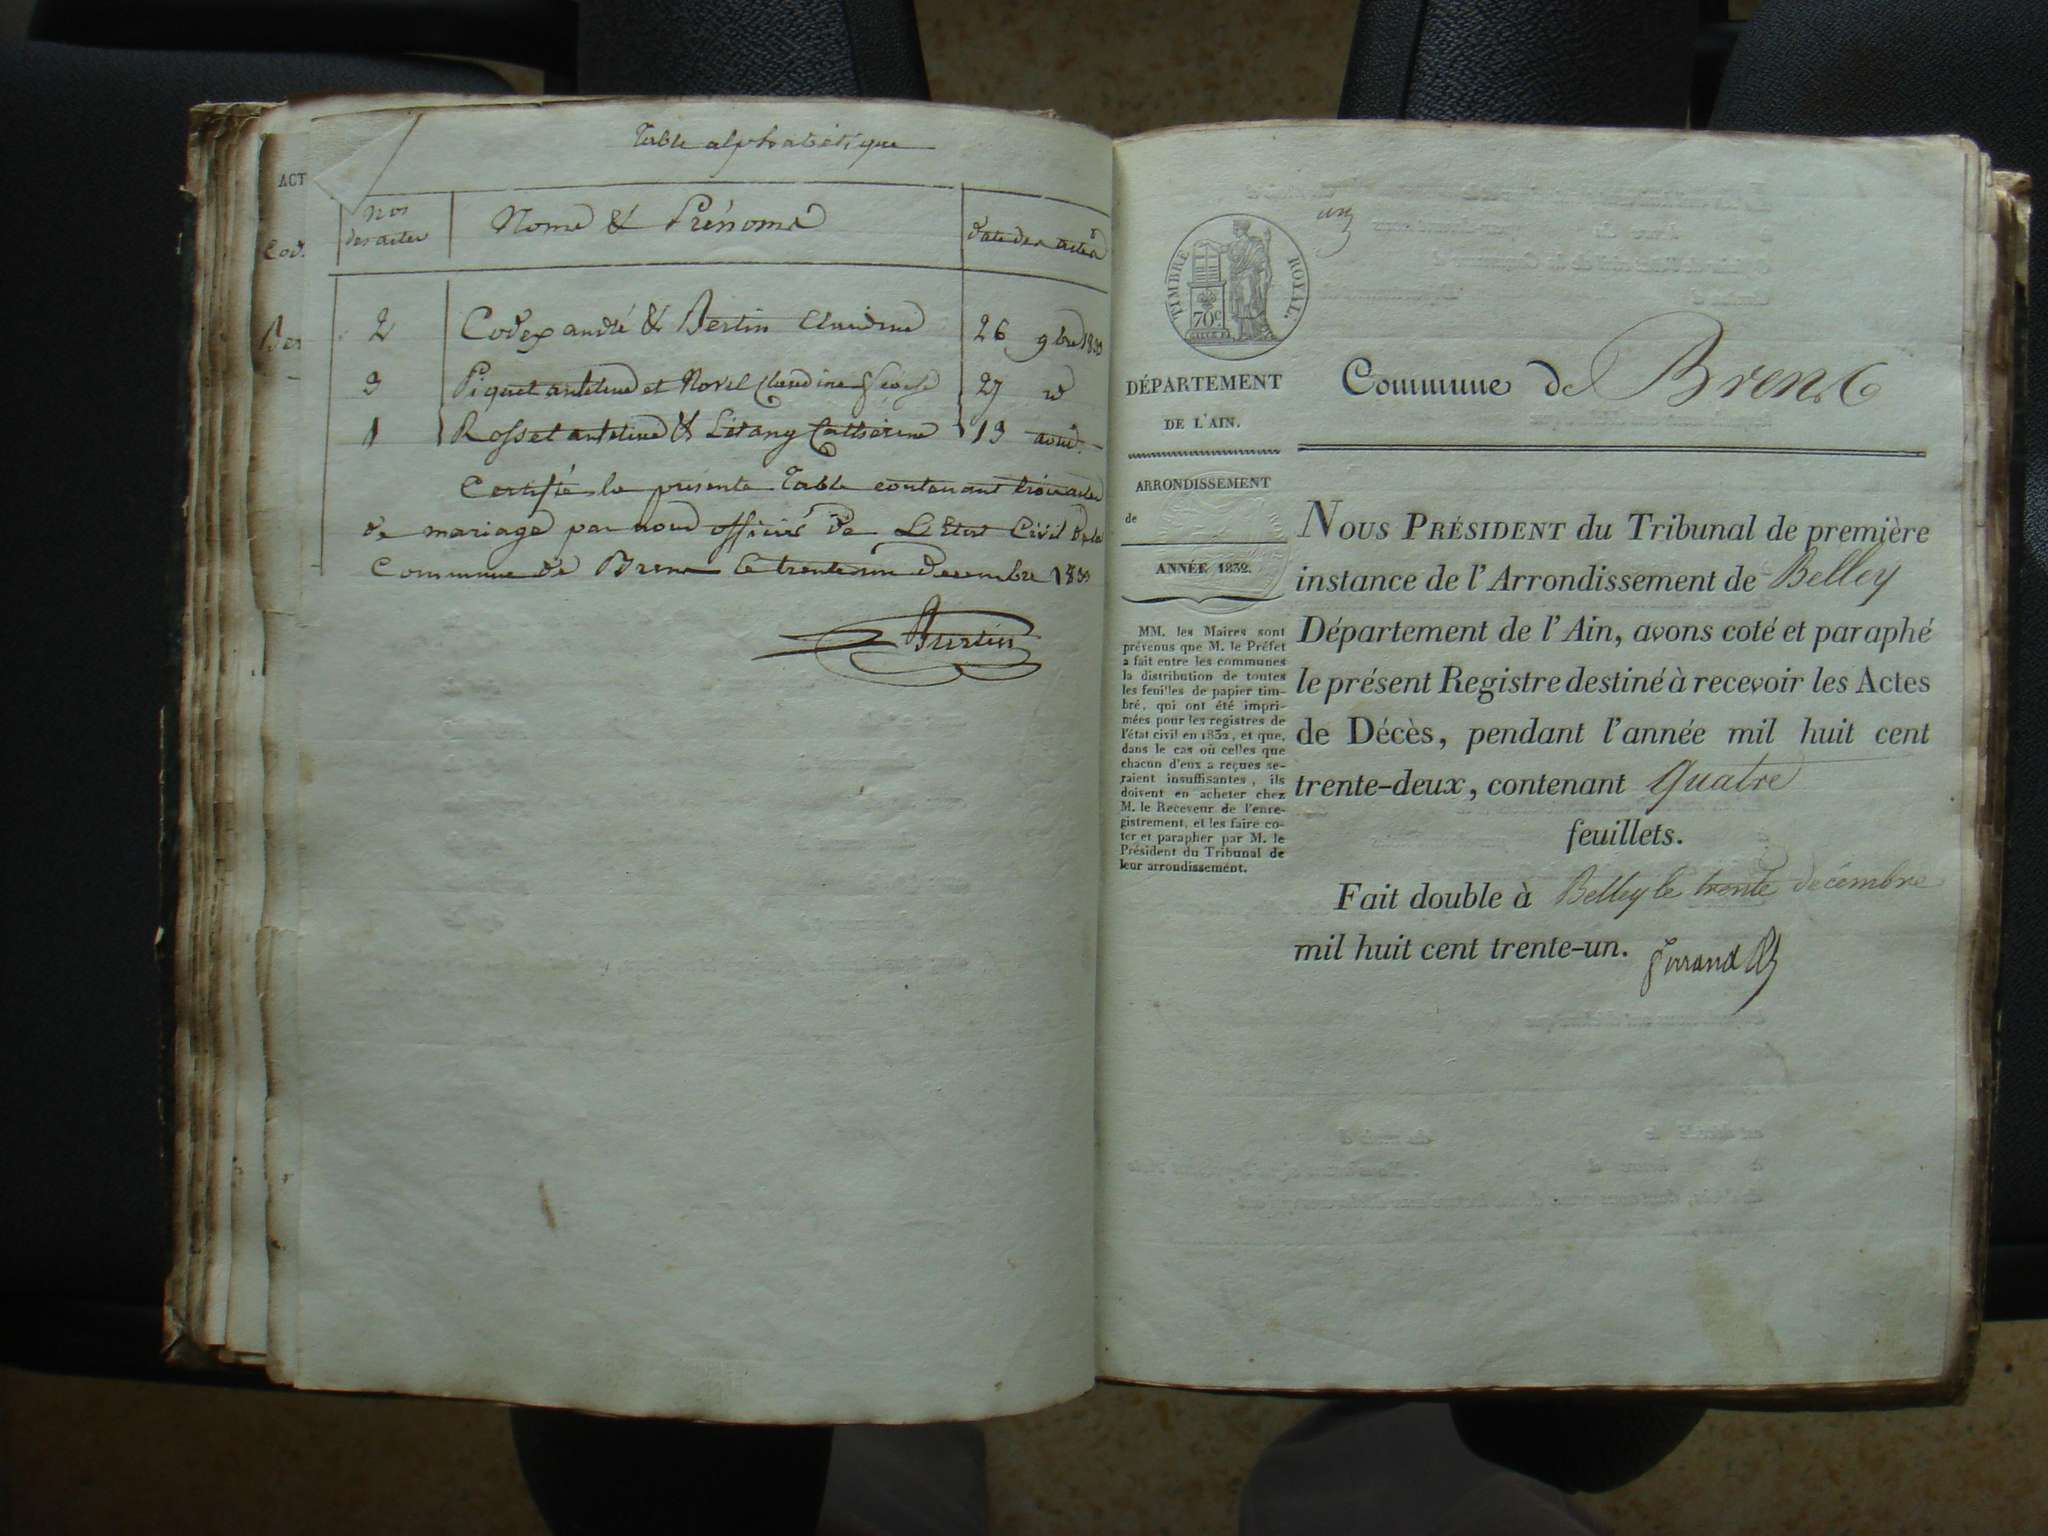 ACT
Cod.
Ber
Table alphabétique
Nos
des actes
Noms & Prénoms
date des actes
2 Codex andré & Bertin Claudine 26 9bre 1830
3 Piquet antelme et Novel Claudine 27 id
1 Rosset antelme & Litany Catherine 19 août
Certifié la présente Table contenant trois actes
de mariage par nous officier de L'Etat Civil de la
Commune de Brens le trente un decembre 1830
Burtin
un
TIMBRE ROYAL.
70c
DÉPARTEMENT
DE L'AIN.
ARRONDISSEMENT
de
ANNÉE 1832.
MM. les Maires sont
prévenus que M. le Préfet
a fait entre les communes
la distribution de toutes
les feuilles de papier tim-
bré, qui ont été impri-
mées pour les registres de
l'état civil en 1832, et que,
dans le cas où celles que
chacun d'eux a reçues se-
raient insuffisantes, ils
doivent en acheter chez
M. le Receveur de l'enre-
gistrement, et les faire co-
ter et parapher par M. le
Président du Tribunal de
leur arrondissement.
Commune de Brens
NOUS PRÉSIDENT du Tribunal de première
instance de l'Arrondissement de Belley
Département de l'Ain, avons coté et paraphé
le présent Registre destiné à recevoir les Actes
de Décès, pendant l'année mil huit cent
trente-deux, contenant quatre
feuillets.
Fait double à Belley le trente decembre
mil huit cent trente-un.